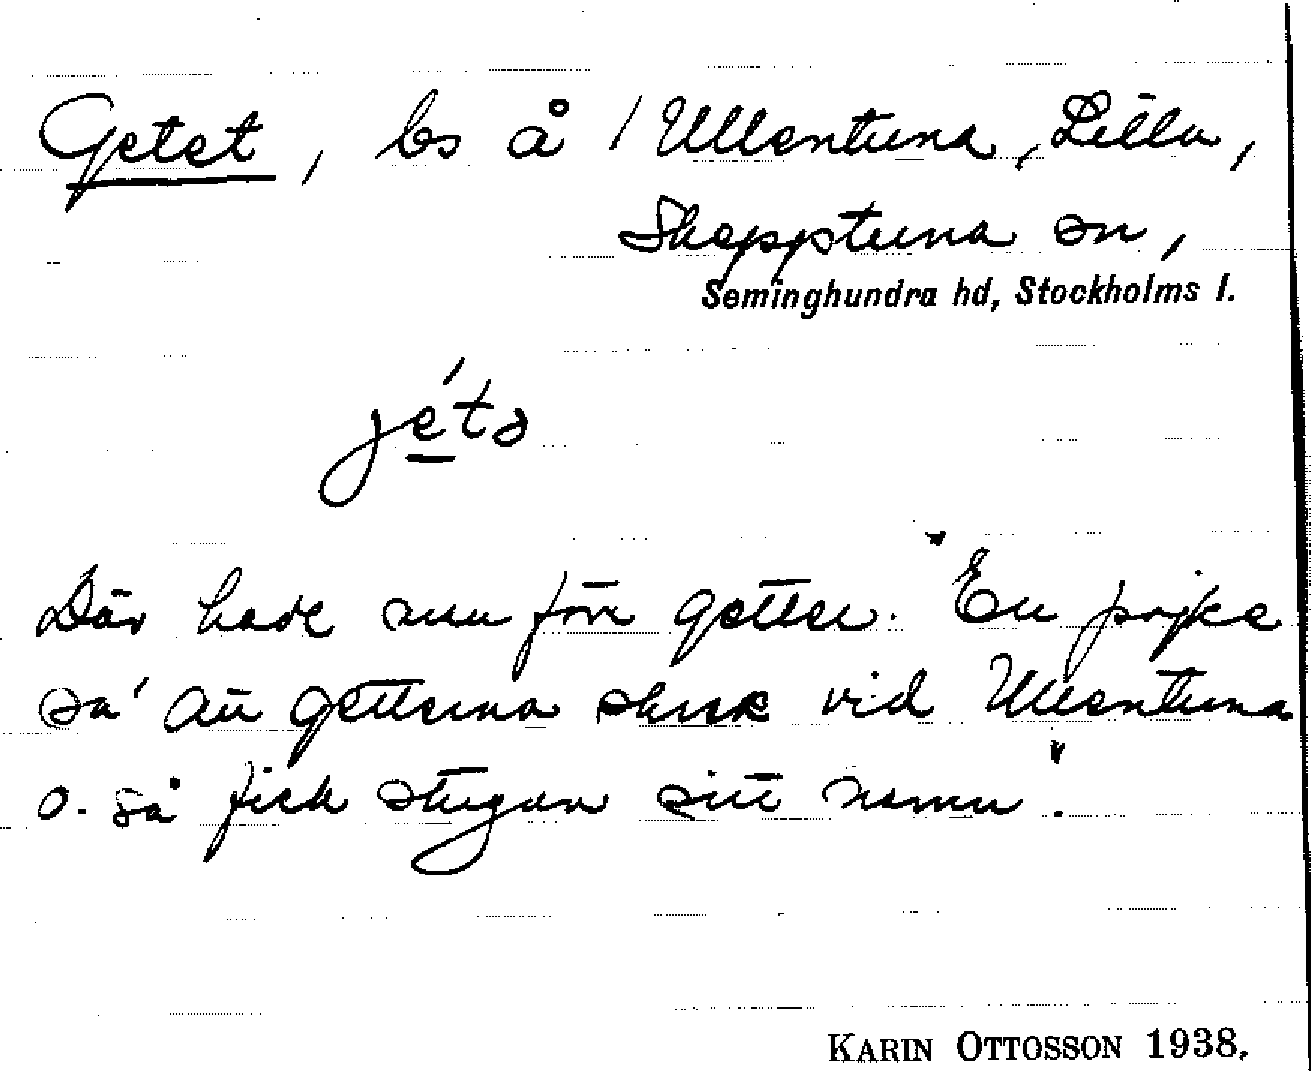 Getet, bs å / Ullentuna, Lilla,
Skepptuna sn,
Seminghundra hd, Stockholms l.
jétə
Där hade mn förr getter. "En pojke
sa' att getterna skrek vid Ullentuna
o. så fick stugan sitt namn".
KARIN OTTOSSON 1938.